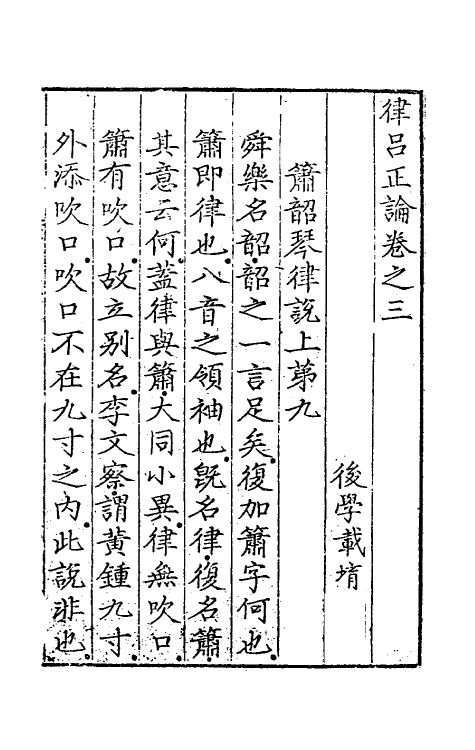 律呂正論卷之三
後學載堉
簫韶琴律說上苐九
舜樂名韶韶之一言足矣復加簫字何也
簫即律也八音之領袖也旣名律復名簫
其意云何蓋律與簫大同小異律無吹口
簫有吹口故立别名李文察謂黃鍾九寸
外添吹口吹口不在九寸之内此說非也